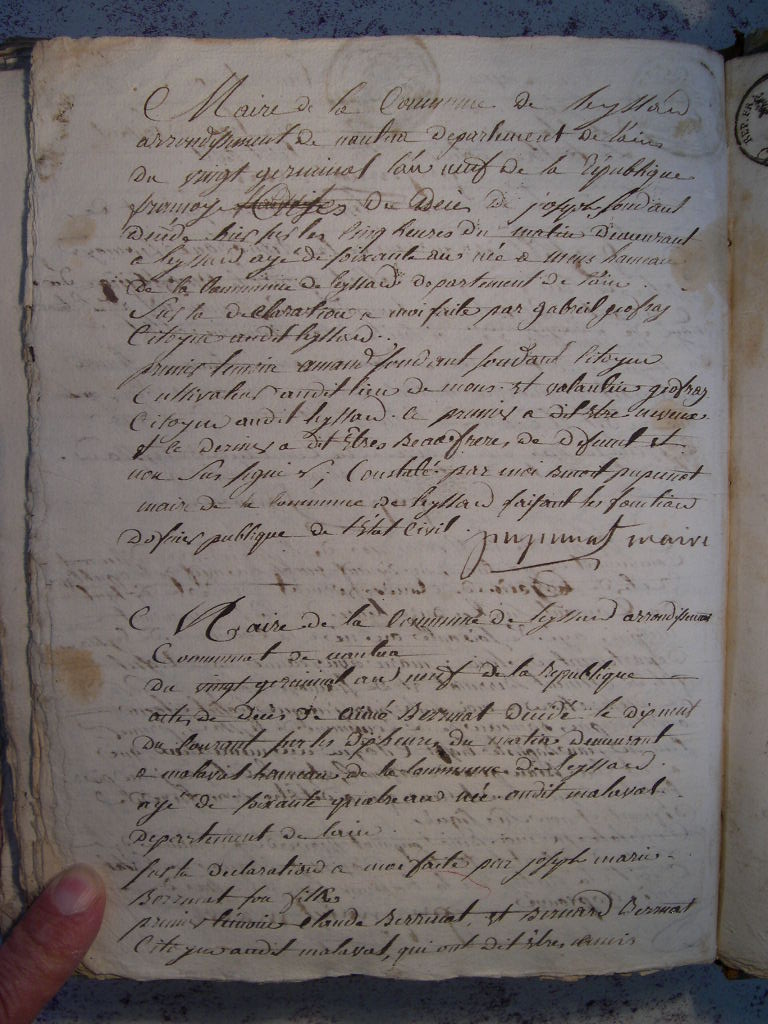 Maire de la Commune de leyssard
arrondissement de nantua departement de lain
du vingt germinal l'an neuf de la République
De Deces De joseph fondant
Decede hier sur les cinq heures du matin Demeurant
a leyssard agé de soixante an née a mons hameau
de la Commune de leyssard departement de lain
Sur la declaration a moi faite par gabriel geofray
Citoyen audit leyssard
premier temoin amand fondant Citoyen
Cultivateur audit lieu de mons et valantin geofray
Citoyen audit leyssard. le premier a dit Etre neveux
et le dernier a dit Etres Beaufrere de Difunt et
non Sus signé; Constaté par moi Benoit pupunat
maire de la Commune de leyssard faisant les fonction
Dofisier publique de l'Etat Civil. pupunat maire
Maire de la Commune de leyssard arrondissement
Communat de nantua
Du vingt germinal an neuf de la Republique
acte de Deces De aimé Bermat Decede le
Du Courant sur les heures du matin Demeurant
a malaval hameau de la Commune de leyssard
agé de soixante quatre an née audit malaval
Departement de lain
sur la Declaration a moi faite par joseph marie
Bermat son fils
premier temoin Claude Bermat, et Bernard Bermat
Citoyen audit malaval, qui ont dit Etres amis
REP. FRA